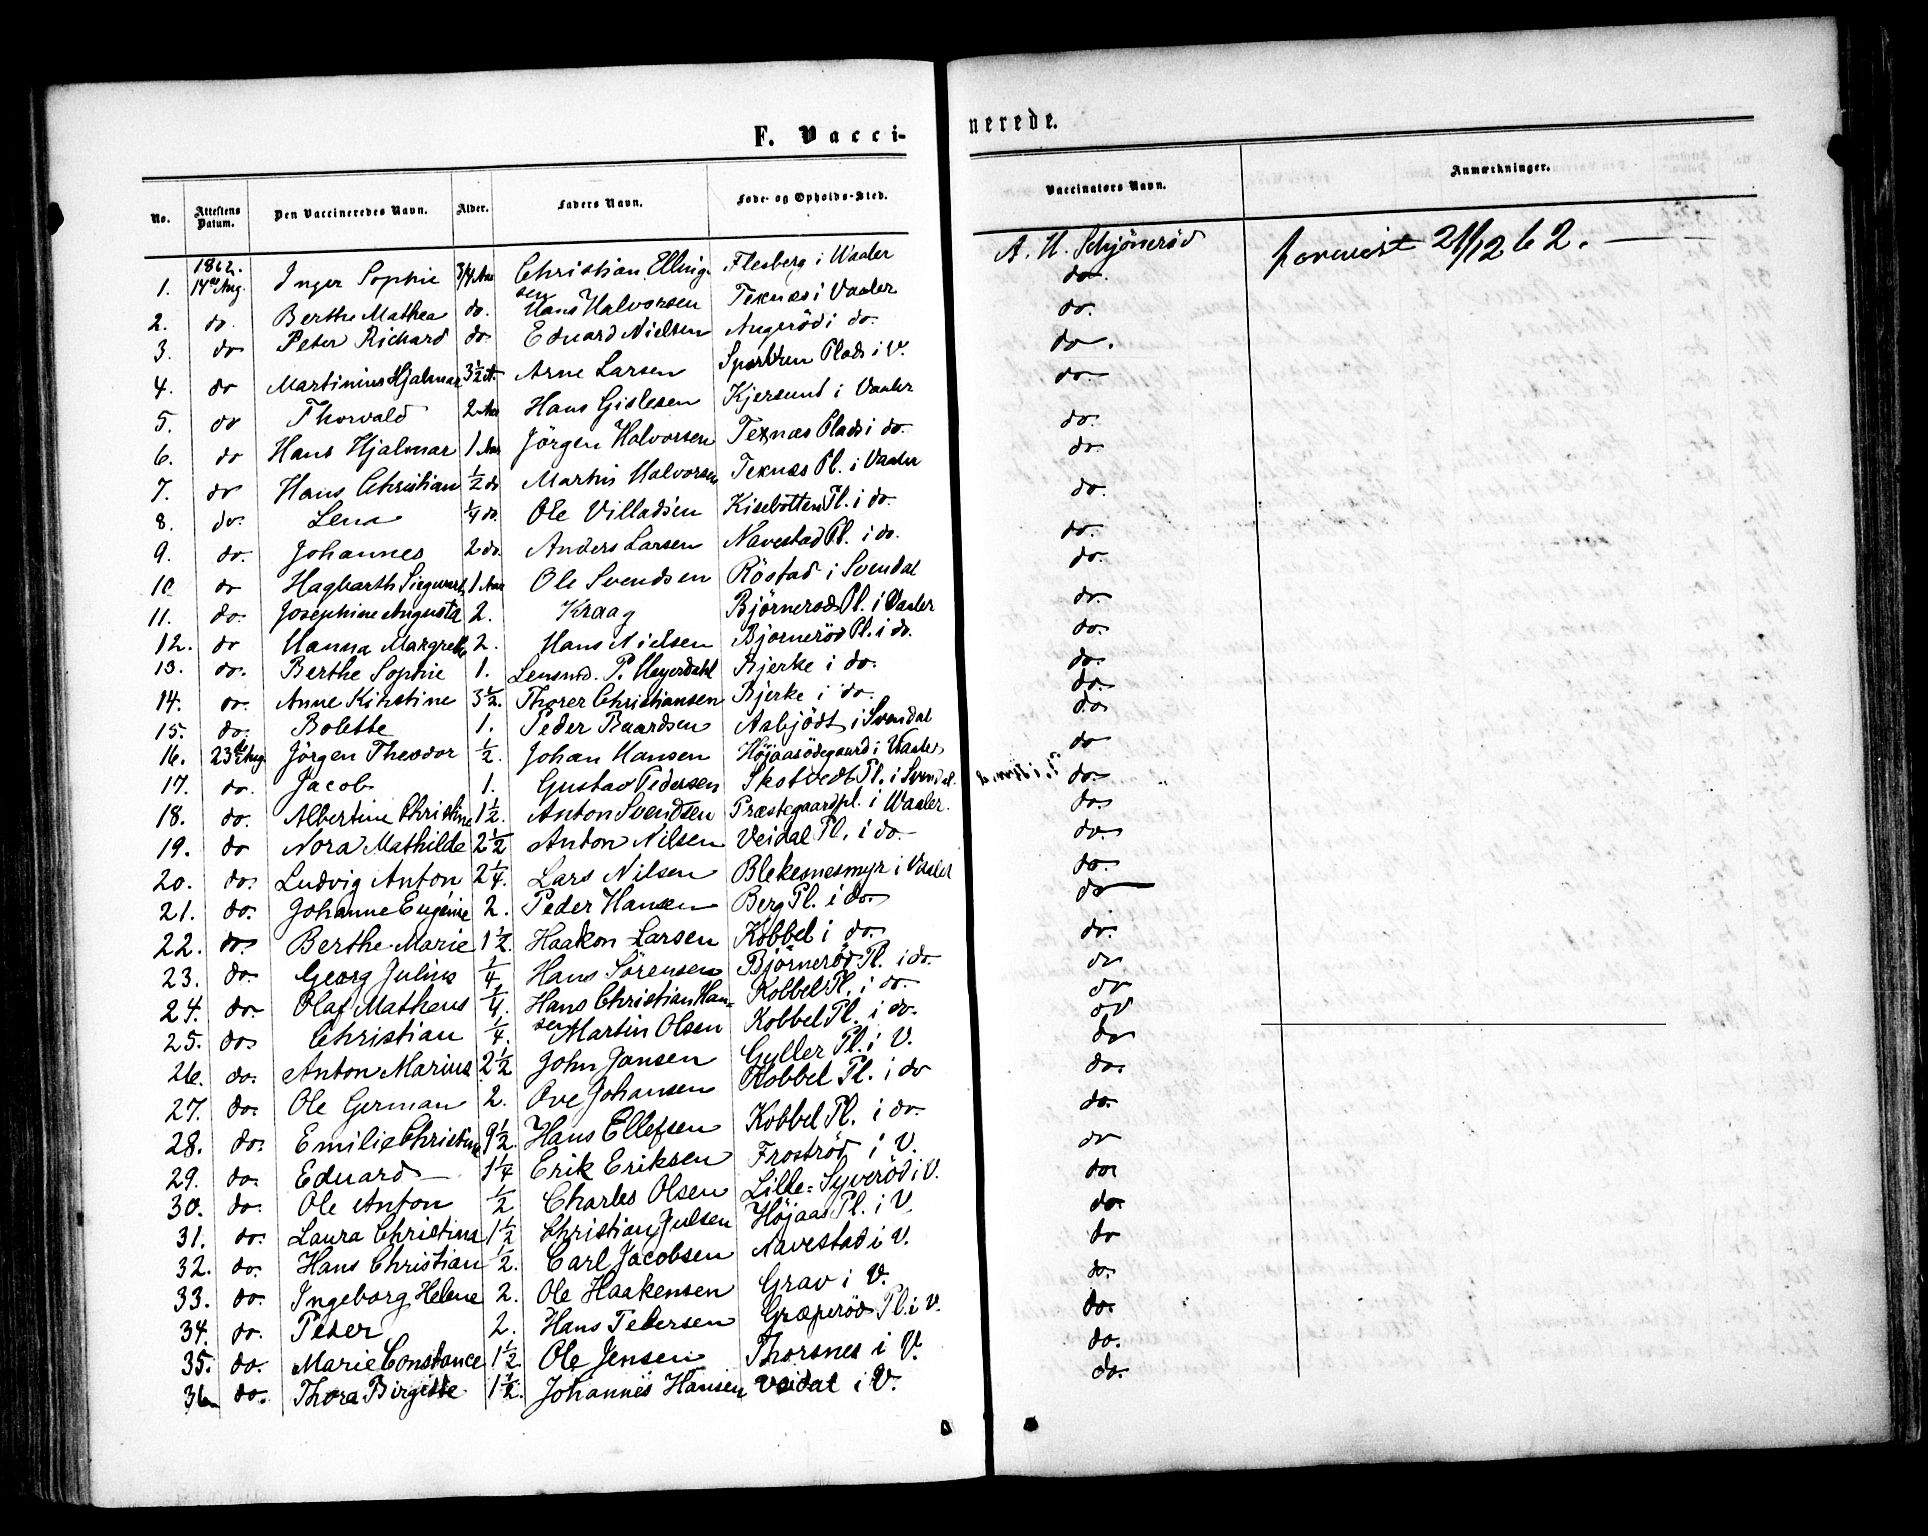 F. Vacci-
nerede.
No. Attestens Datum. Den Vaccineredes Navn. Alder. Faders Navn. Føde- og Opholds-Sted. Vaccinators Navn. Anmærkninger.
1862.
1. 14de Aug. Inger Sophie 3/4 Aar Christian Elling- Flesberg i Waaler A. H. Schjöneröd forevist 21/12 62.
sen
2. do. Berthe Mathea do. Hans Halvorsen Texnæs i Vaaler do.
3. do Peter Richard do. Eduard Nielsen Augeröd i do. do.
4. do Martinius Hjalmar 3 1/2 A. Arne Larsen Plads i V. do.
5. do Thorvald 2 Aar Hans Gislesen Kjersund i Vaaler do.
6. do Hans Hjalmar 1 Aar Jörgen Halvorsen Texnæs Plads i do. do.
7. do Hans Christian 1/2 do Martin Halvorsen Texnæs Pl. i Vaaler do.
8. do. Lena 1/4 do. Ole Villadsen Kisebotten Pl. i do. do.
9. do. Johannes 2 do. Anders Larsen Navestad Pl. i do. do.
10 do Hagbarth Siegwart 1 Aar Ole Svendsen Röstad i Svendal do.
11. do. Josephine Augusta 2. Kraag Björneröd Pl. i Vaaler do.
12. do Hanna Margrethe 2. Hans Nielsen Björneröd Pl. i do. do.
13. do. Berthe Sophie 1. Lensmd. P. Heyerdahl Bjerke i do. do.
14. do. Anne Kirstine 3 1/2. Thorer Christiansen Bjerke i do. do.
15. do. Bolette 1. Peder Baardsen Asbjödt i Svendal do
16. 23de Aug. Jörgen Theodor 1/2. Johan Hansen Höjaasödegaard i Waaler do
17. do. Jacob 1. Gustav Pedersen Skotvedt Pl. i Svendal. do.
18. do. Albertine Christine 1 1/2. Anton Svendsen Præstegaardpl. i Waaler. do.
19. do Nora Mathilde 2 1/2 Anton Nilsen Veidal Pl. i do. do.
20. do. Ludvig Anton 2 1/4. Lars Nilsen Blekesnesmyr i Vaaler do.
21. do. Johanne Eugenie 2. Peder Hansen Berg Pl. i do. do
22. do. Berthe Marie 1 1/2. Haakon Larsen Kobbel i do. do.
23. do. Georg Julius 1/4 Hans Sörensen Björneröd Pl. i do. do
24. do. Olaf Matheus 1/4. Hans Christian Han- Kobbel Pl. i do. do
sen
25. do. Christian 1/4. Martin Olsen Kobbel Pl. i do. do
26. do. Anton Marius 2 1/2 John Jansen Gyller Pl. i V. do
27. do. Ole German 2. Ove Johansen Kobbel Pl. i do do.
28. do. Emilie Christine 9 1/2. Hans Ellefsen Kobbel Pl. i do. do.
29. do. Eduard 1 1/4 Erik Eriksen Froströd i V. do
30. do. Ole Anton 1/2 Charles Olsen Lille-Syveröd i V. do
31. do. Laura Christina 1 1/2 Christian Julsen Höjaas Pl. i V. do.
32. do. Hans Christian 1/2. Carl Jacobsen Navestad i V. do
33. do. Ingeborg Helene 2. Ole Haakensen Grav i V. do.
34. do. Peder 2. Hans Pedersen Græperöd Pl. i V. do.
35. do. Marie Constance 1 1/2 Ole Jensen Thorsnes i V. do.
36 do. Thora Birgitte 1 1/2. Johannes Hansen Veidal i V. do.